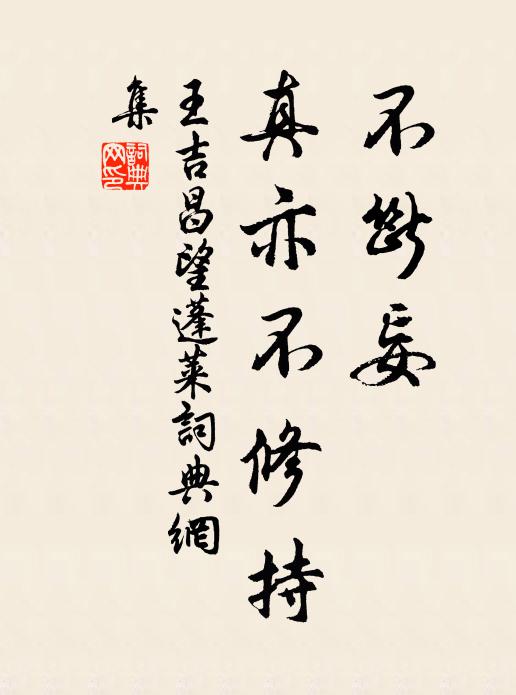 不斷妄
真亦不修持
王吉昌望蓬萊詞典網
集
詞典網印